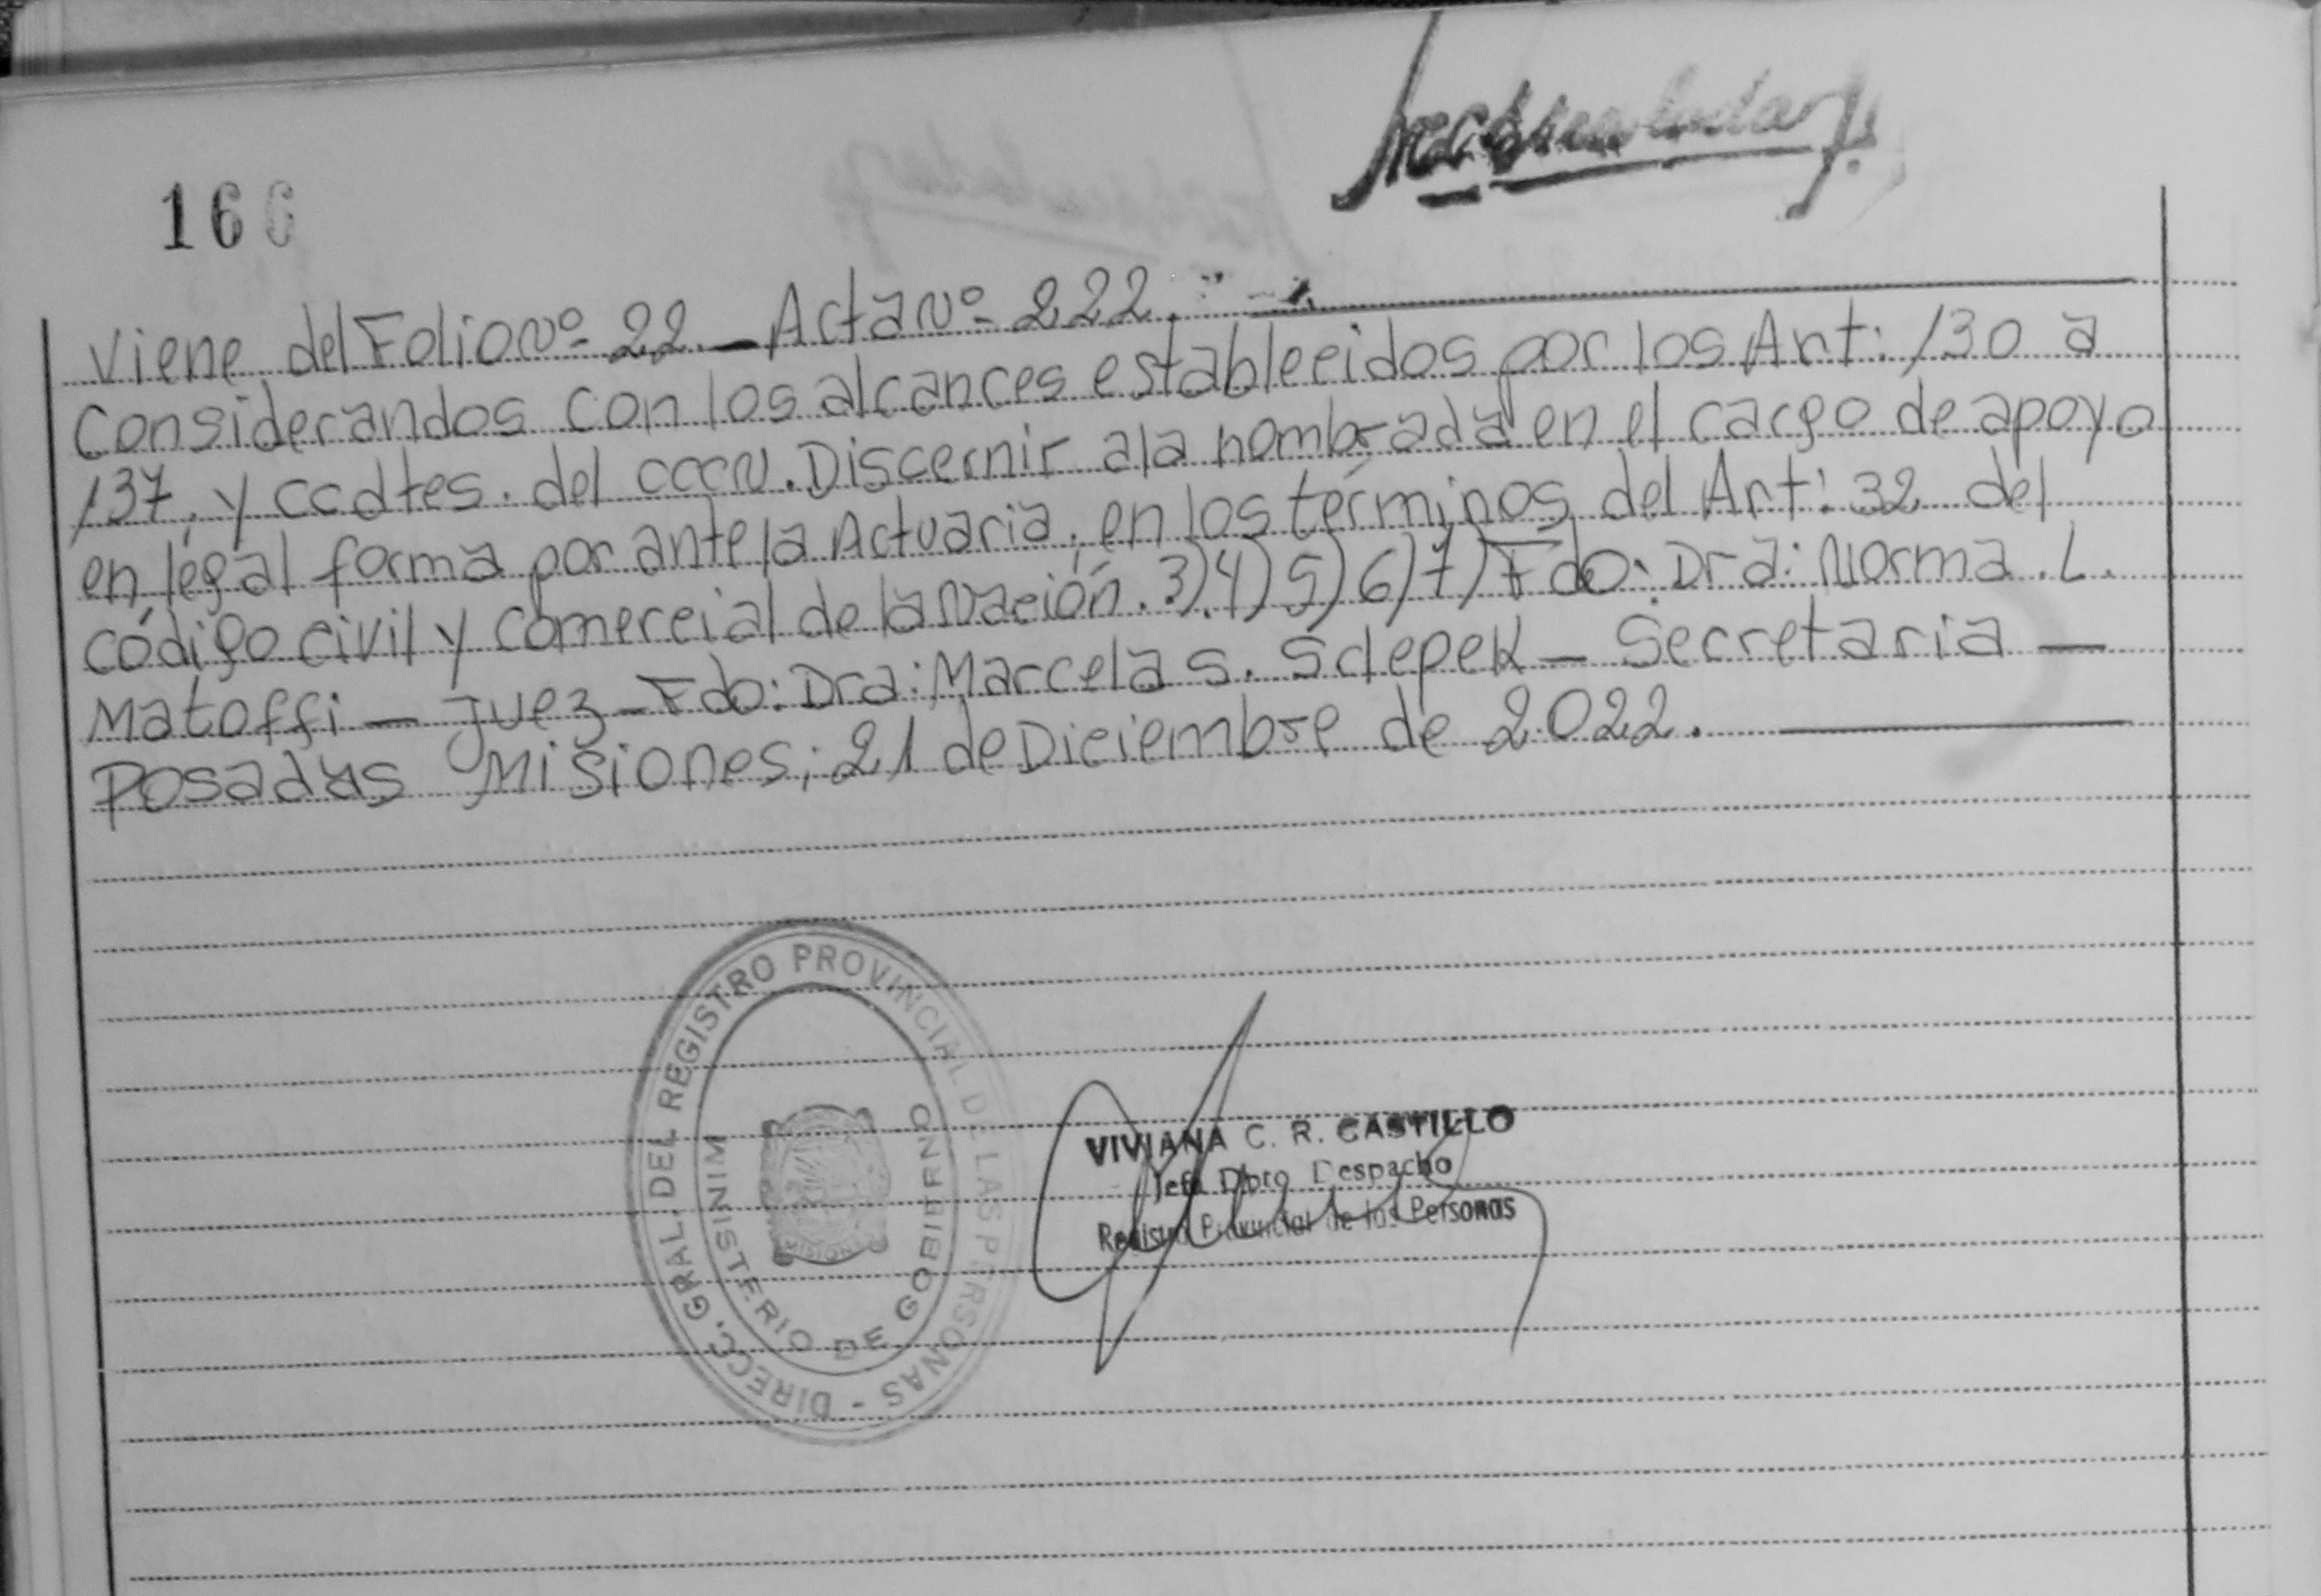 166
Viene del Folio Nº 22 — Acta Nº 222.
Considerandos con los alcances establecidos por los Art: 130 a
137, y ccdtes. del CCCN. Discernir a la nombrada en el cargo de apoyo
en legal forma por ante la Actuaria, en los términos del Art: 32 del
Código civil y Comercial de la Nación. 3) 4) 5) 6) 7) Fdo: Dra: Norma. L.
Matoffi — Juez — Fdo: Dra: Marcela S. Sdepek — Secretaria —
Posadas Misiones; 21 de Diciembre de 2.022.
DIRECC. GRAL. DEL REGISTRO PROVINCIAL DE LAS PERSONAS -
MINISTERIO DE GOBIERNO
MISIONES
VIVIANA C. R. CASTILLO
Jefa Dpto Despacho
Registro Provincial de las Personas